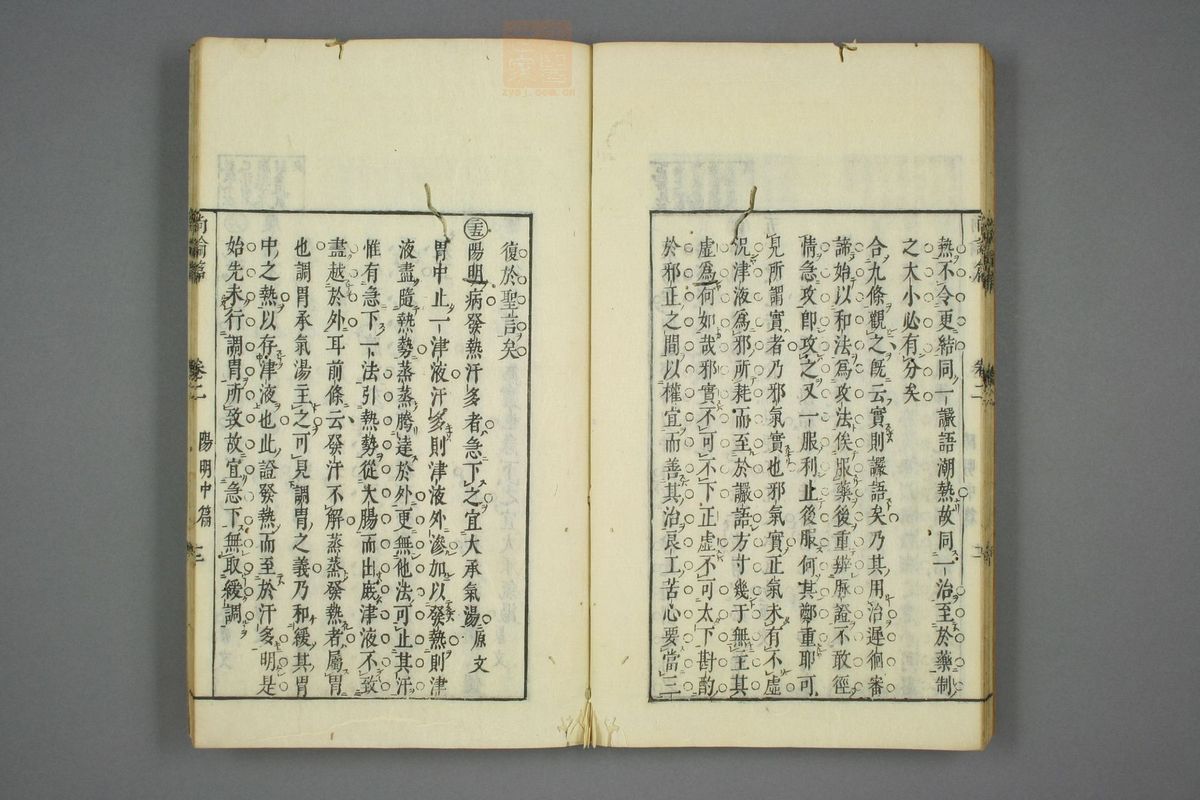 熱不令更結同一讝語潮熱故同一治至於藥制
之大小必有分矣
合九條觀之旣云實則讝語矣乃其用治遲徊審
諦始以和法爲攻法俟服藥後重辨脉證不敢徑
情急攻卽攻之又一服利止後服何其鄭重耶可
見所謂實者乃邪氣實也邪氣實正氣未有不虛
況津液爲邪所耗而至於讝語方寸幾于無主其
虛爲何如哉邪實不可不下正虛不可太下斟酌
於邪正之間以權宜而善其治良工苦心要當三
復於聖言矣
陽明病發熱汗多者急下之宜大承氣湯原文
胃中止一津液汗多則津液外滲加以發熱則津
液盡隨熱勢蒸蒸騰達於外更無他法可止其汗
惟有急下一法引熱勢從大腸而出庶津液不致
盡越於外耳前條云發汗不解蒸蒸發熱者屬胃
也調胃承氣湯主之可見調胃之義乃和緩其胃
中之熱以存津液也此證發熱而至於汗多明是
始先未行調胃所致故宜急下無取緩調
尚論篇
卷二
陽明中篇
三
zyyj.com.cn